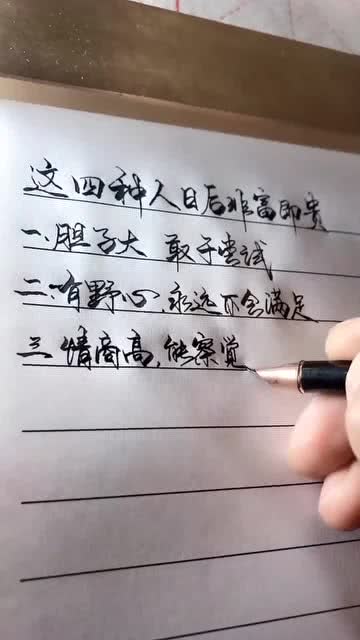 这四种人日后非富即贵
一、胆子大 敢于尝试
二、有野心，永远不会满足
三、情商高，能察觉